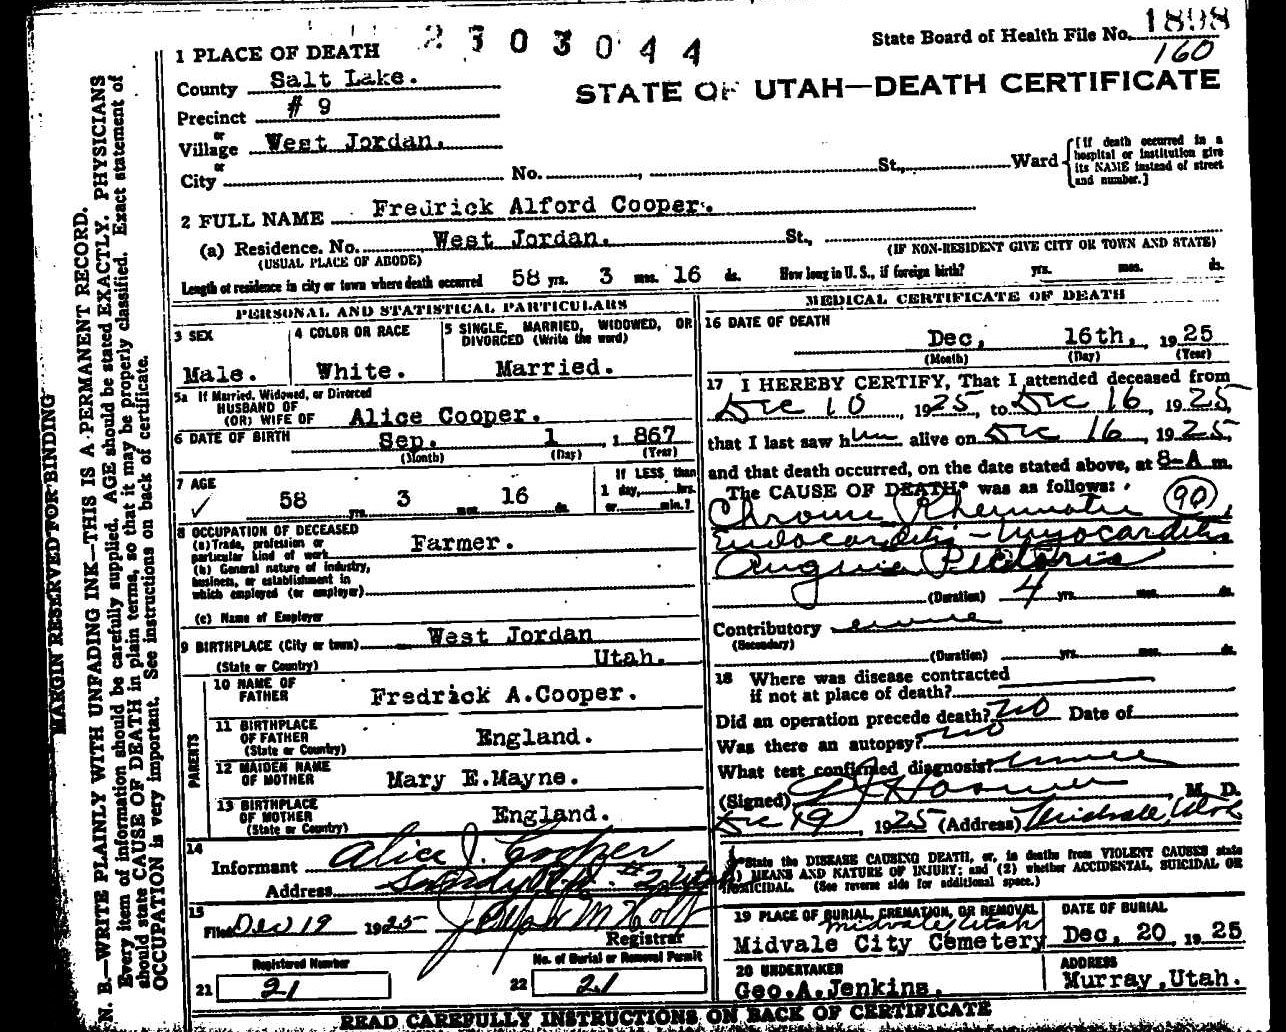 2303044
State Board of Health File No. 1898
160
STATE OF UTAH—DEATH CERTIFICATE
1 PLACE OF DEATH
County Salt Lake.
Precinct # 9
or
Village West Jordan.
or
City No. , St., Ward
[If death occurred in a hospital or institution give its NAME instead of street and number.]
2 FULL NAME Fredrick Alford Cooper.
(a) Residence. No. West Jordan. St.,
(USUAL PLACE OF ABODE) (IF NON-RESIDENT GIVE CITY OR TOWN AND STATE)
Length of residence in city or town where death occurred 58 yrs. 3 mos. 16 ds. How long in U. S., if foreign birth? yrs. mos. ds.
PERSONAL AND STATISTICAL PARTICULARS
3 SEX
Male.
4 COLOR OR RACE
White.
5 SINGLE, MARRIED, WIDOWED, OR
DIVORCED (Write the word)
Married.
5a If Married, Widowed, or Divorced
HUSBAND OF
(OR) WIFE OF Alice Cooper.
6 DATE OF BIRTH Sep. 1 , 1 867
(Month) (Day) (Year)
7 AGE
✓ 58 yrs. 3 mos. 16 ds.
If LESS than
1 day, hrs.
or min.?
8 OCCUPATION OF DECEASED
(a) Trade, profession or
particular kind of work Farmer.
(b) General nature of industry,
business, or establishment in
which employed (or employer)
(c) Name of Employer
9 BIRTHPLACE (City or town) West Jordan
(State or Country) Utah.
PARENTS
10 NAME OF
FATHER Fredrick A.Cooper.
11 BIRTHPLACE
OF FATHER
(State or Country) England.
12 MAIDEN NAME
OF MOTHER Mary E.Mayne.
13 BIRTHPLACE
OF MOTHER
(State or Country) England.
14
Informant Alice J. Cooper
Address Sandy # 2 Utah
15
Filed Dec 19 1925
Registrar
Registered Number
21 21
No. of Burial or Removal Permit
22 21
MEDICAL CERTIFICATE OF DEATH
16 DATE OF DEATH
Dec, 16th, , 19 25
(Month) (Day) (Year)
17 I HEREBY CERTIFY, That I attended deceased from
Dec 10 , 1925, to Dec 16 , 1925,
that I last saw him alive on Dec 16 , 1925,
and that death occurred, on the date stated above, at 8-A m.
The CAUSE OF DEATH* was as follows:
Chronic Rheumatic (90)
Endocarditis - Myocarditis
Angina Pectoris
(Duration) 4 yrs. mos. ds.
Contributory
(Secondary)
(Duration) yrs. mos. ds.
18 Where was disease contracted
if not at place of death?
Did an operation precede death? No Date of
Was there an autopsy? No
What test confirmed diagnosis?
(Signed) , M. D.
Dec 19 , 1925 (Address) Midvale, Utah
*State the DISEASE CAUSING DEATH, or, in deaths from VIOLENT CAUSES state
(1) MEANS AND NATURE OF INJURY; and (2) whether ACCIDENTAL, SUICIDAL OR
HOMICIDAL. (See reverse side for additional space.)
19 PLACE OF BURIAL, CREMATION, OR REMOVAL
Midvale Utah
Midvale City Cemetery
DATE OF BURIAL
Dec, 20 , 19 25
20 UNDERTAKER
Geo.A.Jenkins.
ADDRESS
Murray,Utah.
READ CAREFULLY INSTRUCTIONS ON BACK OF CERTIFICATE
MARGIN RESERVED FOR BINDING
N. B.—WRITE PLAINLY WITH UNFADING INK—THIS IS A PERMANENT RECORD.
Every item of information should be carefully supplied. AGE should be stated EXACTLY. PHYSICIANS
should state CAUSE OF DEATH in plain terms, so that it may be properly classified. Exact statement of
OCCUPATION is very important. See instructions on back of certificate.